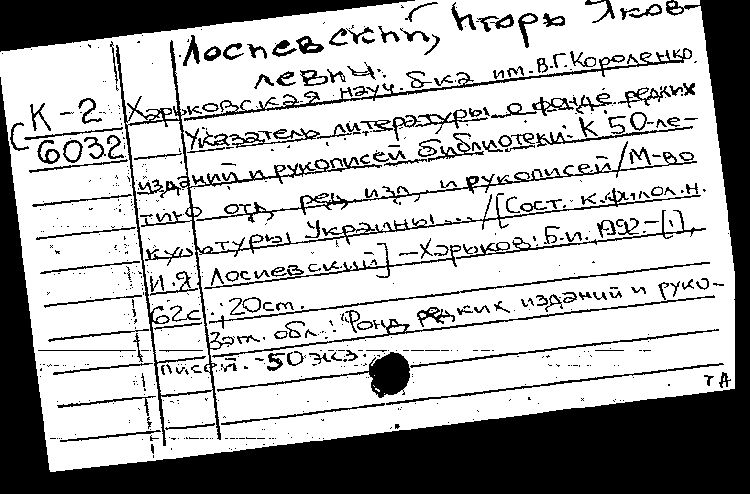 Лосиевский, Игорь Яков-
левич.
К-2
С 6032
Харьковская науч. б-ка им. В.Г. Короленко.
Указатель литературы о фонде редких
изданий и рукописей библиотеки: К 50-ле-
тию отд. ред. изд. и рукописей / М-во
культуры Украины... / [Сост. к. филол. н.
И.Я. Лосиевский] - Харьков: Б.и., 1992 - [1],
62с.; 20см.
Заг. обл.: Фонд редких изданий и руко-
писей. - 50 экз.